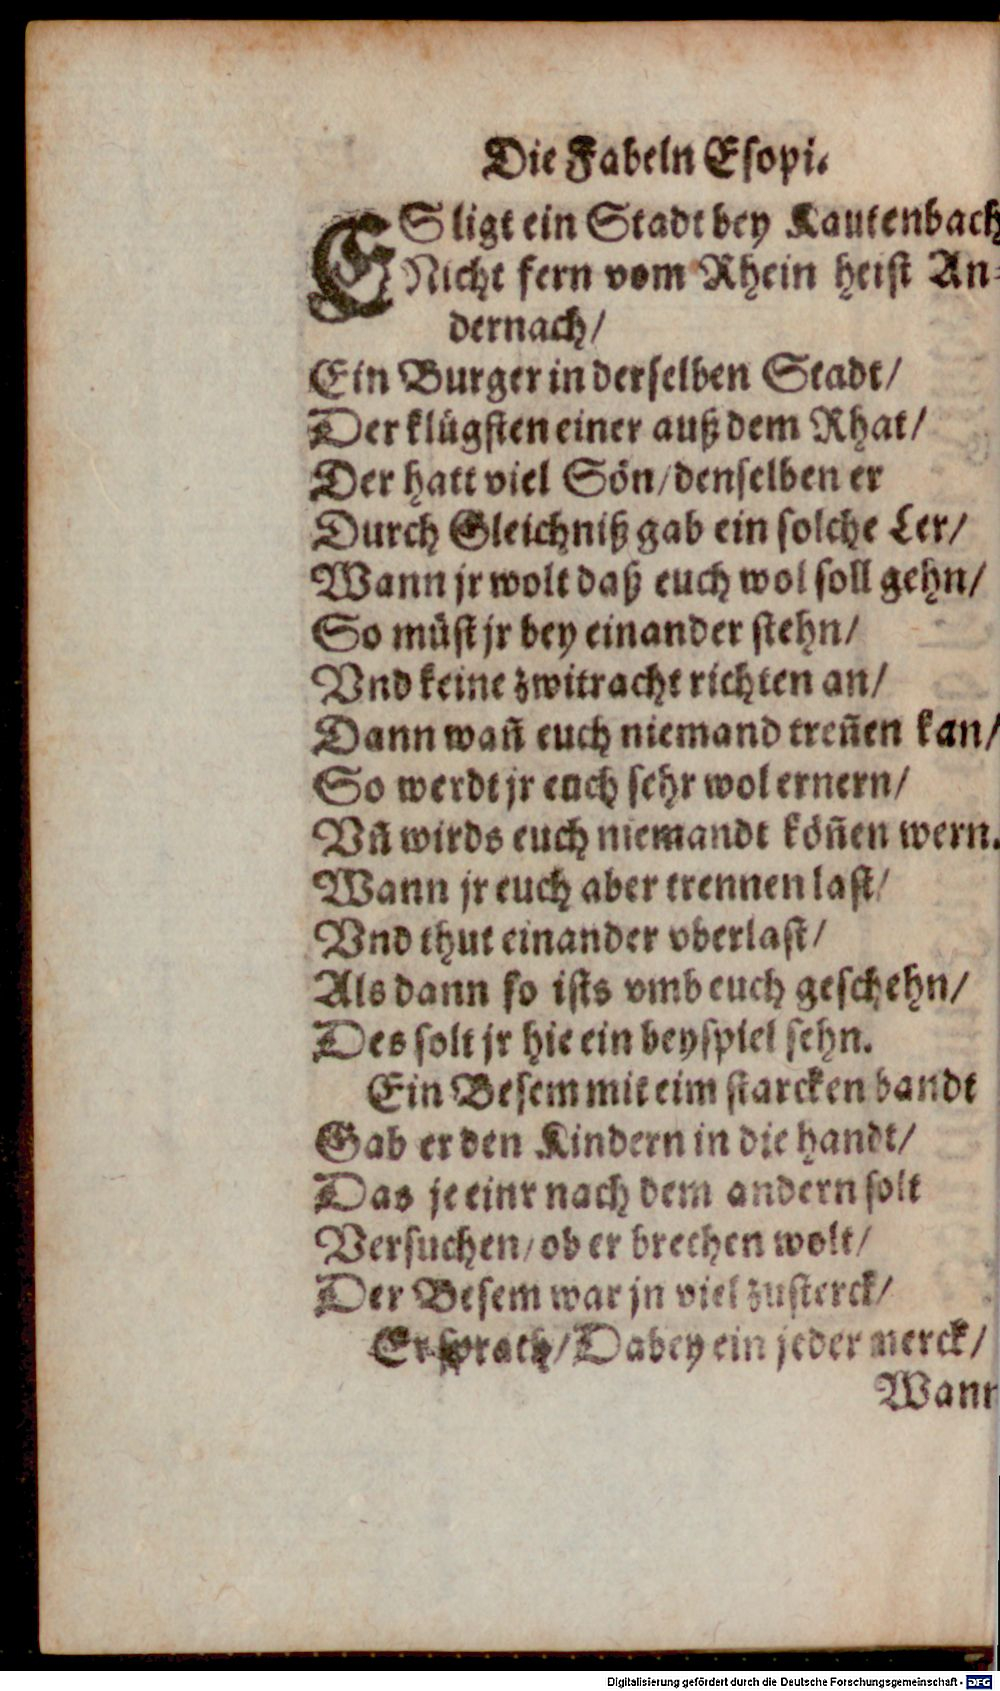 Die Fabeln Esopi.
ES ligt ein Stadt bey Kautenbach
Nicht fern vom Rhein heist An-
dernach/
Ein Burger in derselben Stadt/
Der klügsten einer auß dem Rhat/
Der hatt viel Sön/denselben er
Durch Gleichniß gab ein solche Ler/
Wann jr wolt daß euch wol soll gehn/
So müst jr bey einander stehn/
Vnd keine zwitracht richten an/
Dann wañ euch niemand treñen kan/
So werdt jr euch sehr wol ernern/
Vñ wirds euch niemandt köñen wern.
Wann jr euch aber trennen last/
Vnd thut einander vberlast/
Als dann so ists vmb euch geschehn/
Des solt jr hie ein beyspiel sehn.
Ein Besem mit eim starcken bandt
Gab er den Kindern in die handt/
Das je einr nach dem andern solt
Versuchen/ob er brechen wolt/
Der Besem war jn viel zusterck/
Er sprach/Dabey ein jeder merck/
Wann
Digitalisierung gefördert durch die Deutsche Forschungsgemeinschaft - DFG